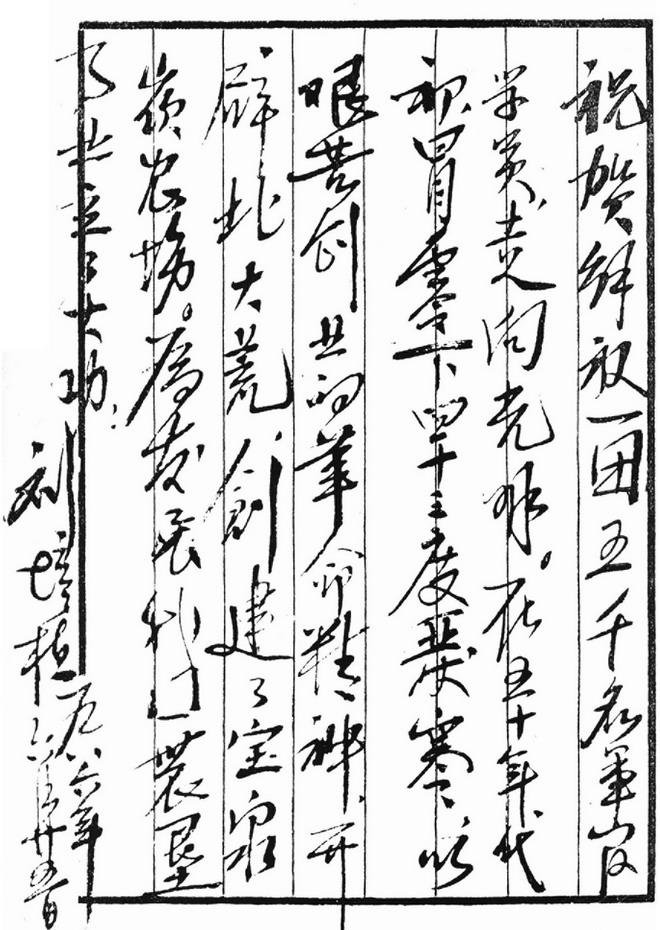 祝贺解放一团五千名军官
学员走向光明。在五十年代
初冒零下四十三度严寒以
艰苦创业的革命精神、开
辟北大荒創建了宝泉
嶺农场。為发展我们農垦
事业立了大功.
刘培植
一九八六年
六月廿五日